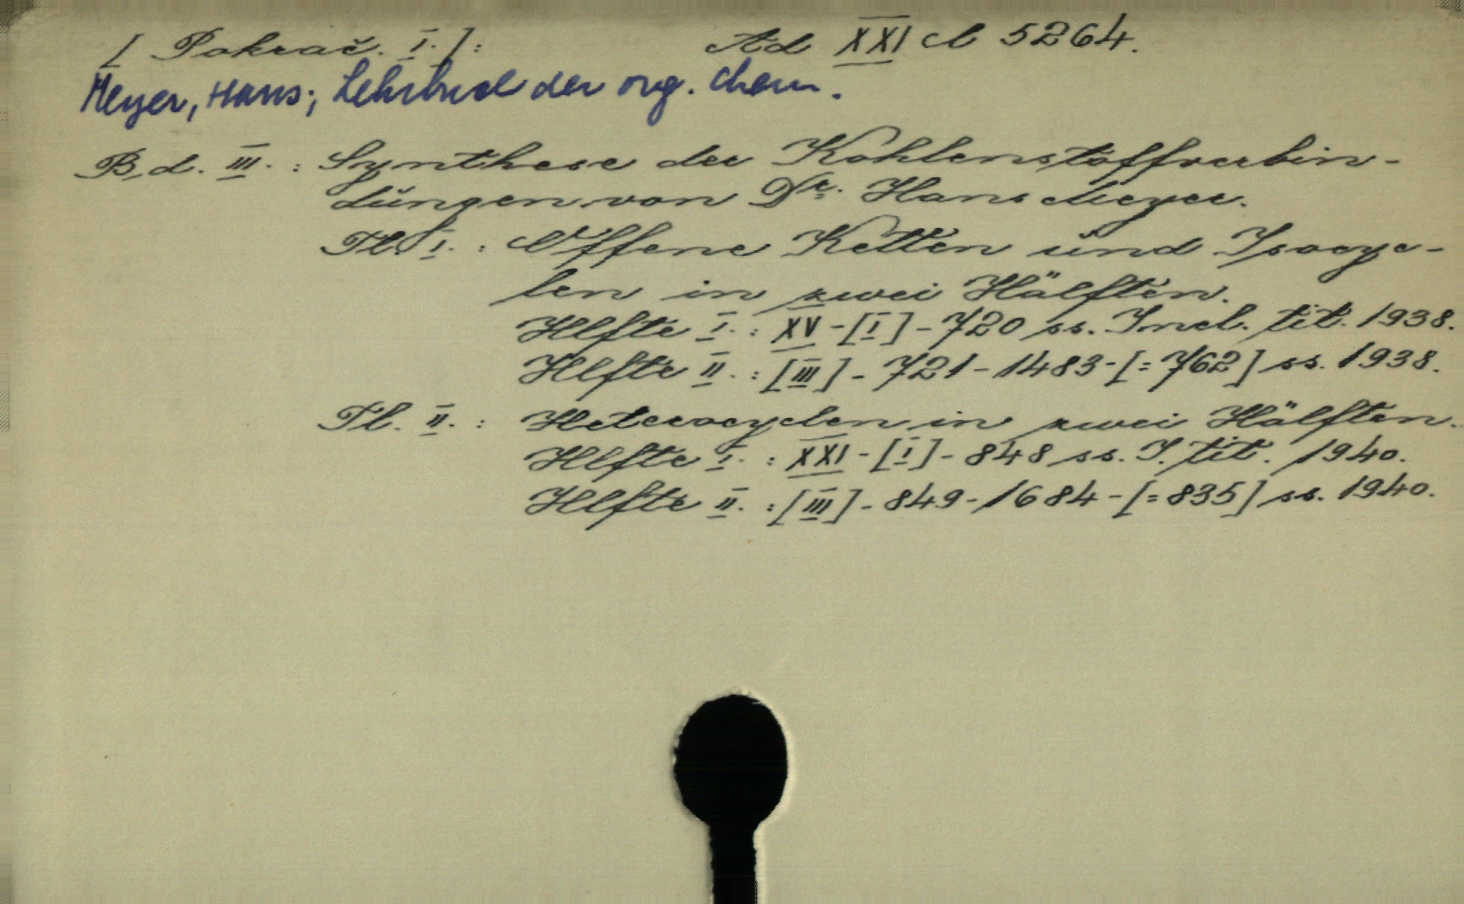 [ Pokrač. I. ]: Ad XXI cl 5264.
Meyer, Hans; Lehrbuch der org. Chem.
Bd. III. : Synthese der Kohlenstoffverbin-
dungen von Dr. Hans Meyer.
Tl. I. : Offene Ketten und Isocyc-
len in zwei Hälften.
Hlfte I. : XV-[I]-720 ss. Incl. tit. 1938.
Hlfte II. : [III]-721-1483-[=762] ss. 1938.
Tl. II. : Heterocyclen in zwei Hälften.
Hlfte I. : XXI-[I]-848 ss. I. tit. 1940.
Hlfte II. : [III]-849-1684-[=835] ss. 1940.